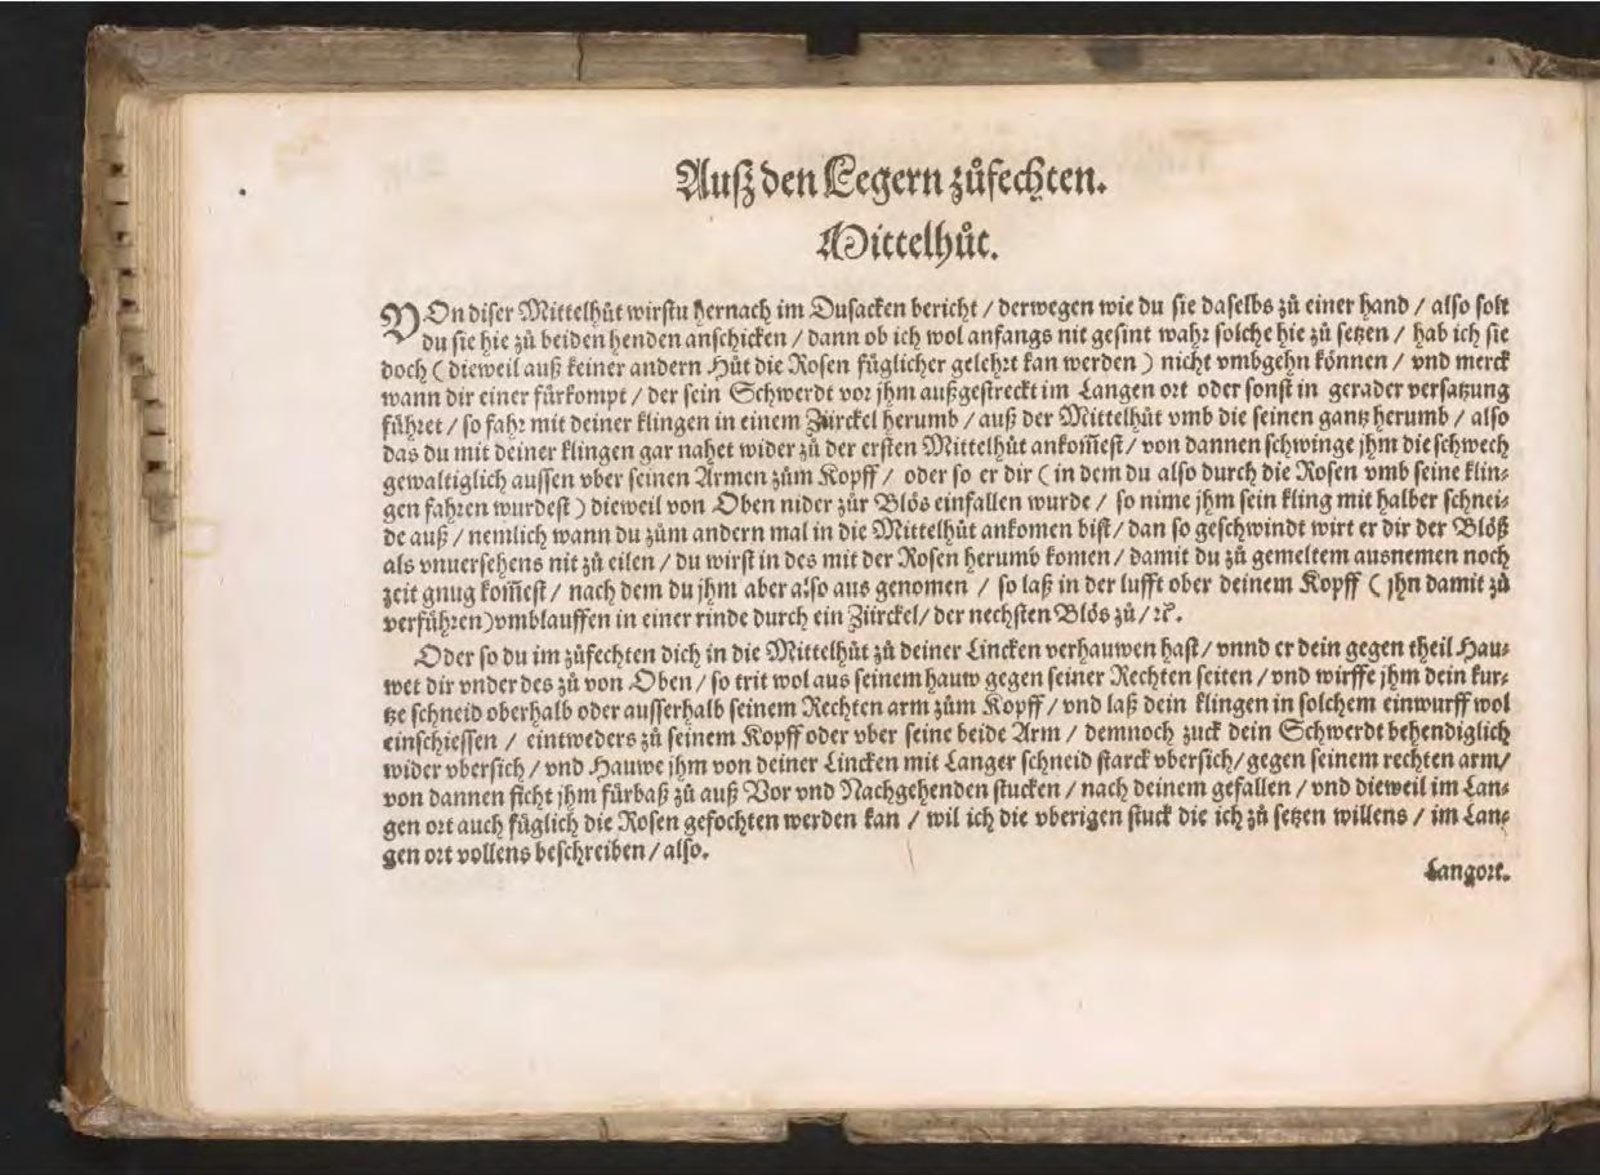 Auß den Legern zůfechten.
Mittelhůt.
VOn diser Mittelhůt wirstu hernach im Dusacken bericht / derwegen wie du sie daselbs zů einer hand / also solt
du sie hie zů beiden henden anschicken / dann ob ich wol anfangs nit gesint wahr solche hie zů setzen / hab ich sie
doch ( dieweil auß keiner andern Hůt die Rosen füglicher gelehrt kan werden ) nicht vmbgehn können / vnd merck
wann dir einer fürkompt / der sein Schwerdt vor jhm außgestreckt im Langen ort oder sonst in gerader versatzung
führet / so fahr mit deiner klingen in einem Zürckel herumb / auß der Mittelhůt vmb die seinen gantz herumb / also
das du mit deiner klingen gar nahet wider zů der ersten Mittelhůt ankom̄est / von dannen schwinge jhm die schwech
gewaltiglich aussen vber seinen Armen zům Kopff / oder so er dir ( in dem du also durch die Rosen vmb seine klin⸗
gen fahren wurdest ) dieweil von Oben nider zůr Blös einfallen wurde / so nime jhm sein kling mit halber schnei⸗
de auß / nemlich wann du zům andern mal in die Mittelhůt ankomen bist / dan so geschwindt wirt er dir der Blöß
als vnuersehens nit zů eilen / du wirst in des mit der Rosen herumb komen / damit du zů gemeltem ausnemen noch
zeit gnug kom̄est / nach dem du jhm aber also aus genomen / so laß in der lufft ober deinem Kopff ( jhn damit zů
verführen ) vmblauffen in einer rinde durch ein Zürckel / der nechsten Blös zů / ꝛc.
Oder so du im zůfechten dich in die Mittelhůt zů deiner Lincken verhauwen hast / vnnd er dein gegen theil Hau⸗
wet dir vnder des zů von Oben / so trit wol aus seinem hauw gegen seiner Rechten seiten / vnd wirffe jhm dein kur⸗
tze schneid oberhalb oder ausserhalb seinem Rechten arm zům Kopff / vnd laß dein klingen in solchem einwurff wol
einschiessen / eintweders zů seinem Kopff oder vber seine beide Arm / demnoch zuck dein Schwerdt behendiglich
wider vbersich / vnd Hauwe jhm von deiner Lincken mit Langer schneid starck vbersich / gegen seinem rechten arm /
von dannen ficht jhm fürbaß zů auß Vor vnd Nachgehenden stucken / nach deinem gefallen / vnd dieweil im Lan⸗
gen ort auch füglich die Rosen gefochten werden kan / wil ich die vberigen stuck die ich zů setzen willens / im Lan⸗
gen ort vollens beschreiben / also.
Langort.